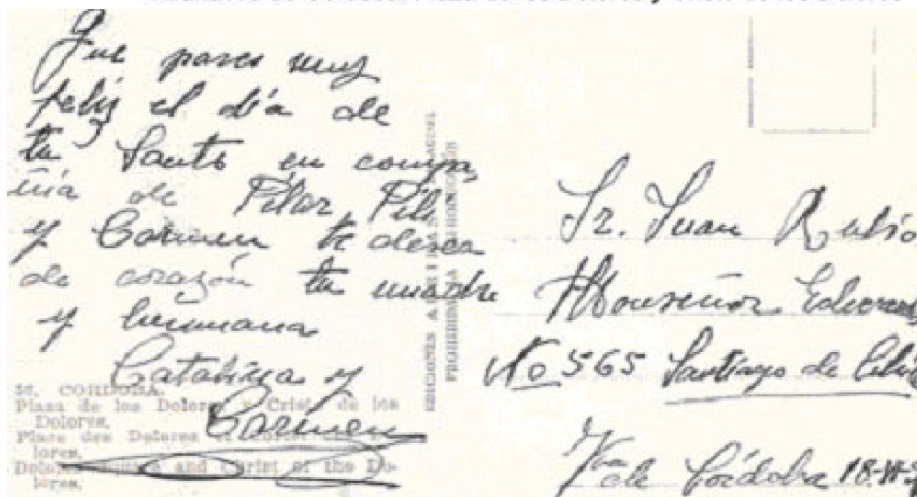 Que pases muy
feliz el día de
tu Santo en compa
ñia de Pilar Pili
y Carmen te desea
de corazón tu madre
y hermana
Catalina y
Carmen
CORDOBA.
Plaza de los Dolores y Cristo de los
Dolores.
Place des Dolores et Christ
lores.
Dolores and Christ of the Do-
lores.
EDICIONES
PROHIBIDA LA
Sr. Juan Rubio
Monseñor
No 565 Santiago de
de Córdoba 18-